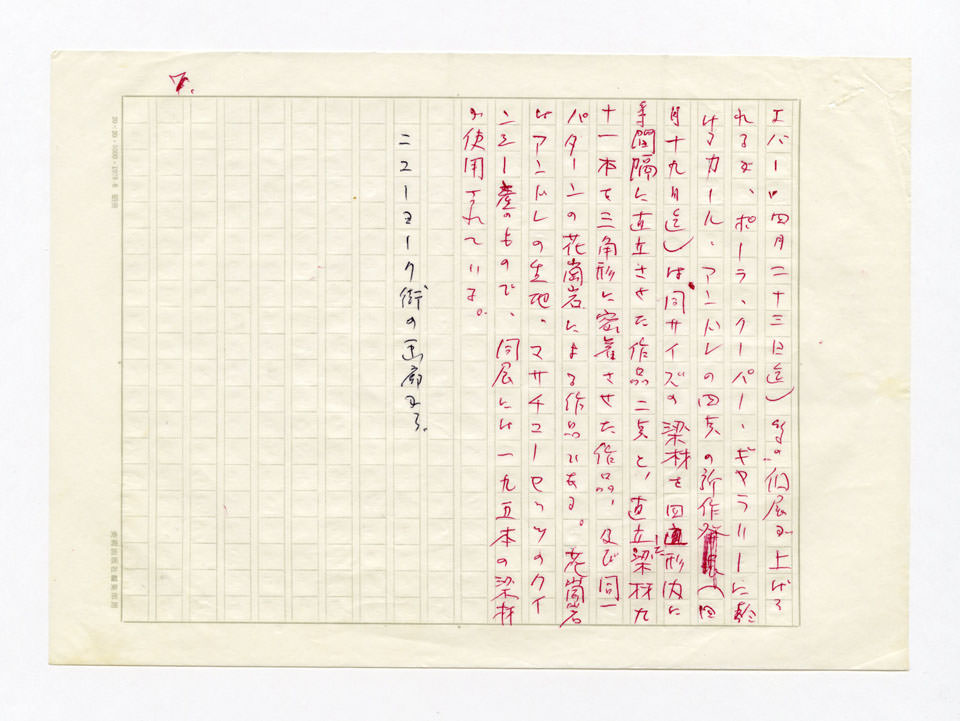 7.
エバー」四月二十三日迄)等の個展が上げら
れるが、ポーラ、クーパー・ギャラリーに於
けるカール・アンドレの四点の新作(四
月十九日迄)は同サイズの梁材を四直形内に
等間隔に直立させた作品二点と、直立した梁材九
十一本を三角形に密着させた作品、及び同一
パターンの花崗岩による作品である。花崗岩
はアンドレの生地、マサチューセッツのクイ
ンシー産のもので、同展には一九五本の梁材
が使用されている。
ニューヨーク街の画廊から.
20×20=1000・1979・8
美術出版社編集部用